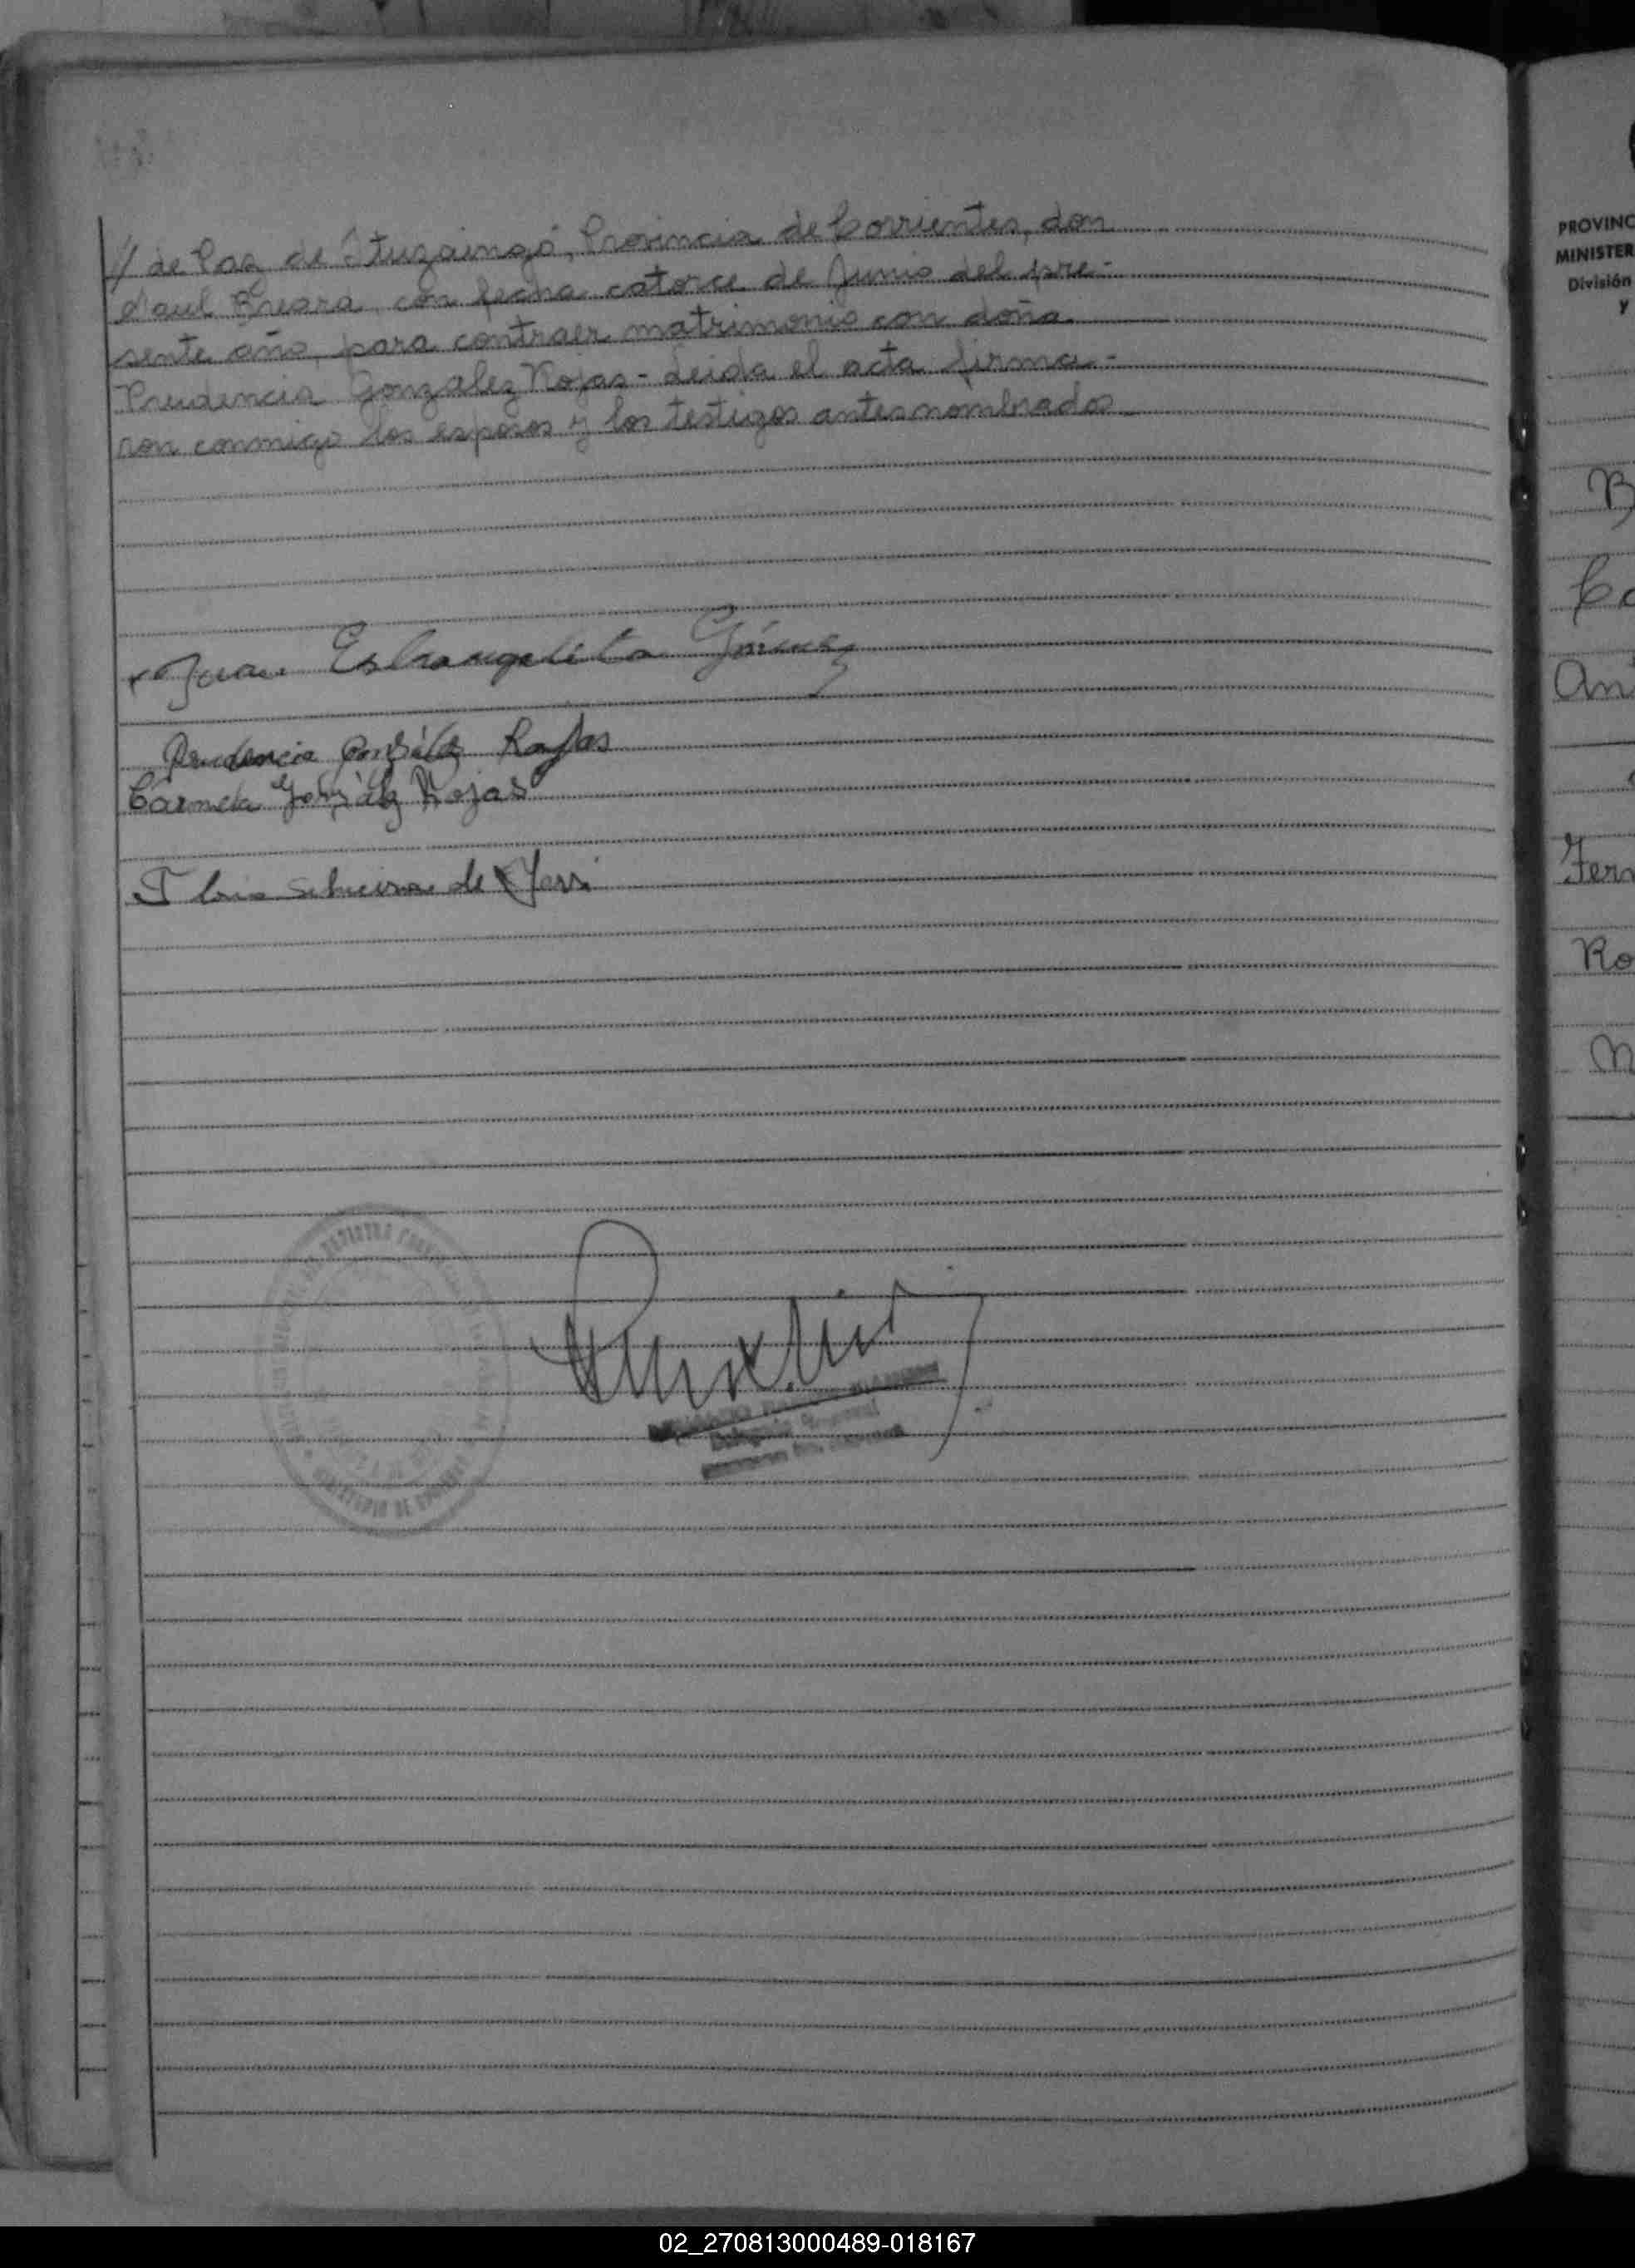 // de Paz de Ituzaingó, Provincia de Corrientes, don
Raul con fecha catorce de Junio del pre-
sente año, para contraer matrimonio con doña
Prudencia González Rojas - Leida el acta firma-
ron conmigo los esposos y los testigos antesnombrados
Juan Estrangelita Gimenez
Prudencia González Rojas
Carmela González Rojas
de
Delegado
PROVINC
MINISTER
División
y
B
Co
An
Fern
Ro
M
02_270813000489-018167